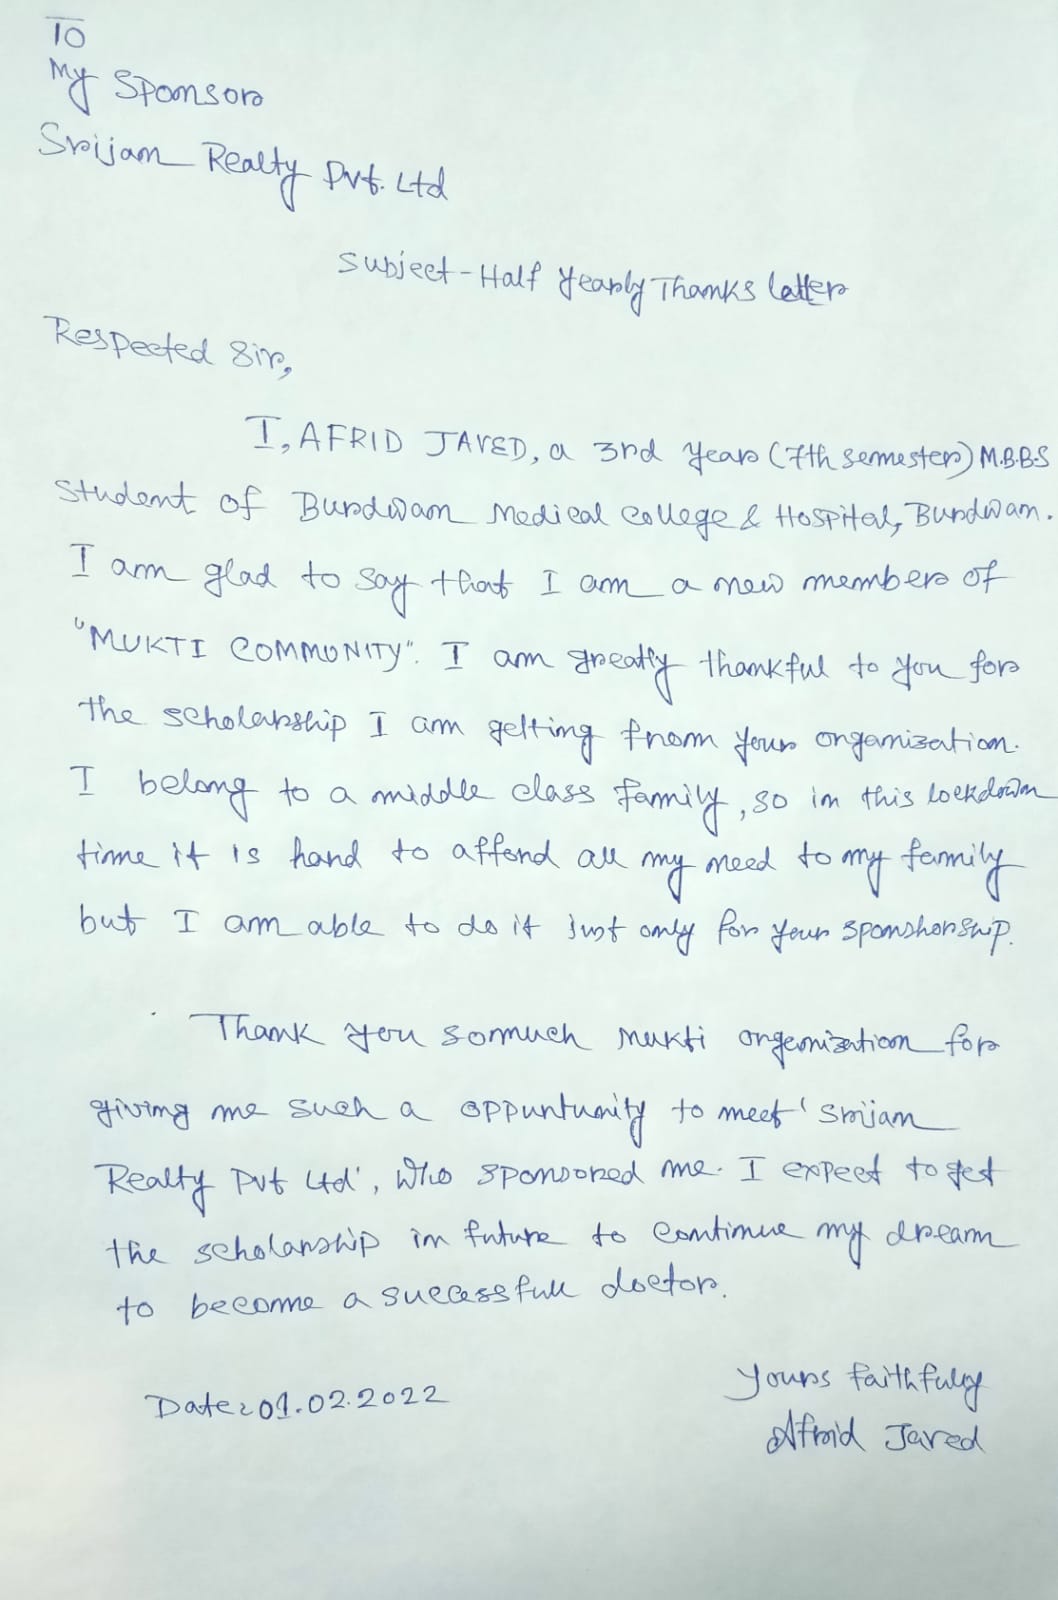 To
My Sponsor
Srijan Realty Pvt. Ltd
Subject - Half Yearly Thanks latter
Respected Sir,
I, AFRID JAVED, a 3rd Year (7th semester) M.B.B.S
Student of Burdwan Medical College & Hospital, Burdwan.
I am glad to say that I am a new member of
"MUKTI COMMUNITY". I am greatly thankful to you for
the scholarship I am getting from your organization.
I belong to a middle class family, so in this lockdown
time it is hard to afford all my need to my family
but I am able to do it just only for your sponshorship.
Thank you somuch Mukti organization for
giving me such a oppuntunity to meet 'Srijan
Realty Pvt Ltd', who sponsored me. I expect to get
the scholarship in future to continue my dream
to become a successfull doctor.
Date: 01.02.2022
Yours faithfully
Afrid Javed